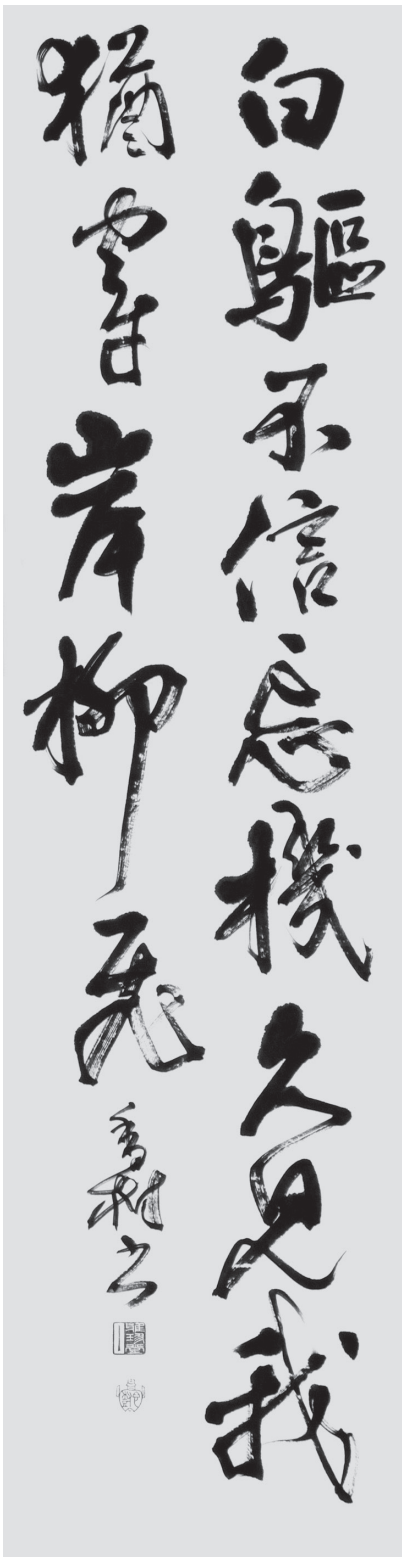 白鷗不信忘機久見我
猶穿岸柳飛
香 書